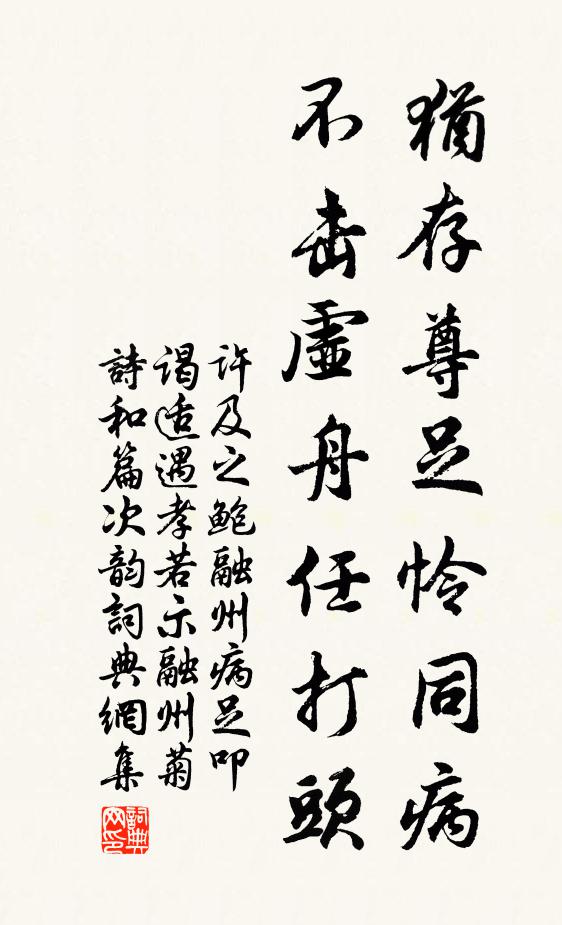 猶存尊足怜同病
不击虛舟任打頭
许及之鲍融州病足叩
谒适遇孝若示融州菊
詩和篇次韵詞典網集
詞典网印